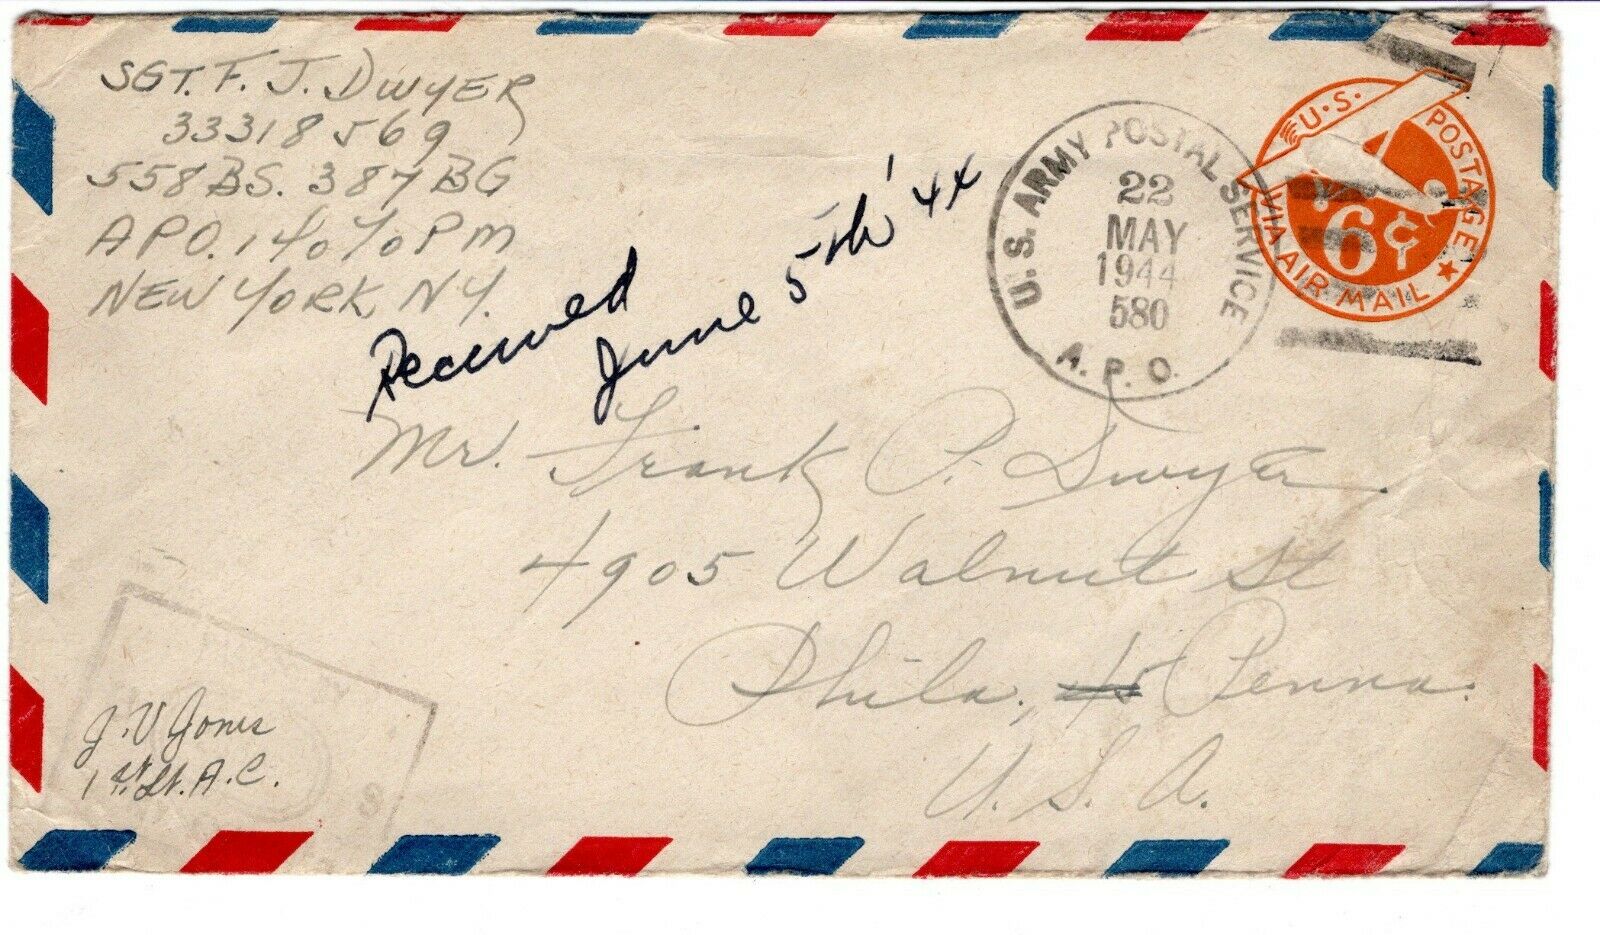 SGT. F. J. DWYER
33318569
558 BS. 387 BG
A P O. 140 % PM
NEW YORK, NY.
Received
June 5th '44
U.S. ARMY POSTAL SERVICE
22
MAY
1944
580
A.P.O.
U.S. POSTAGE
6¢
VIA AIR MAIL
Mr. Frank P. Dwyer
4905 Walnut St
Phila, Penna.
U. S. A.
J. V Jones
1st Lt. A.C.